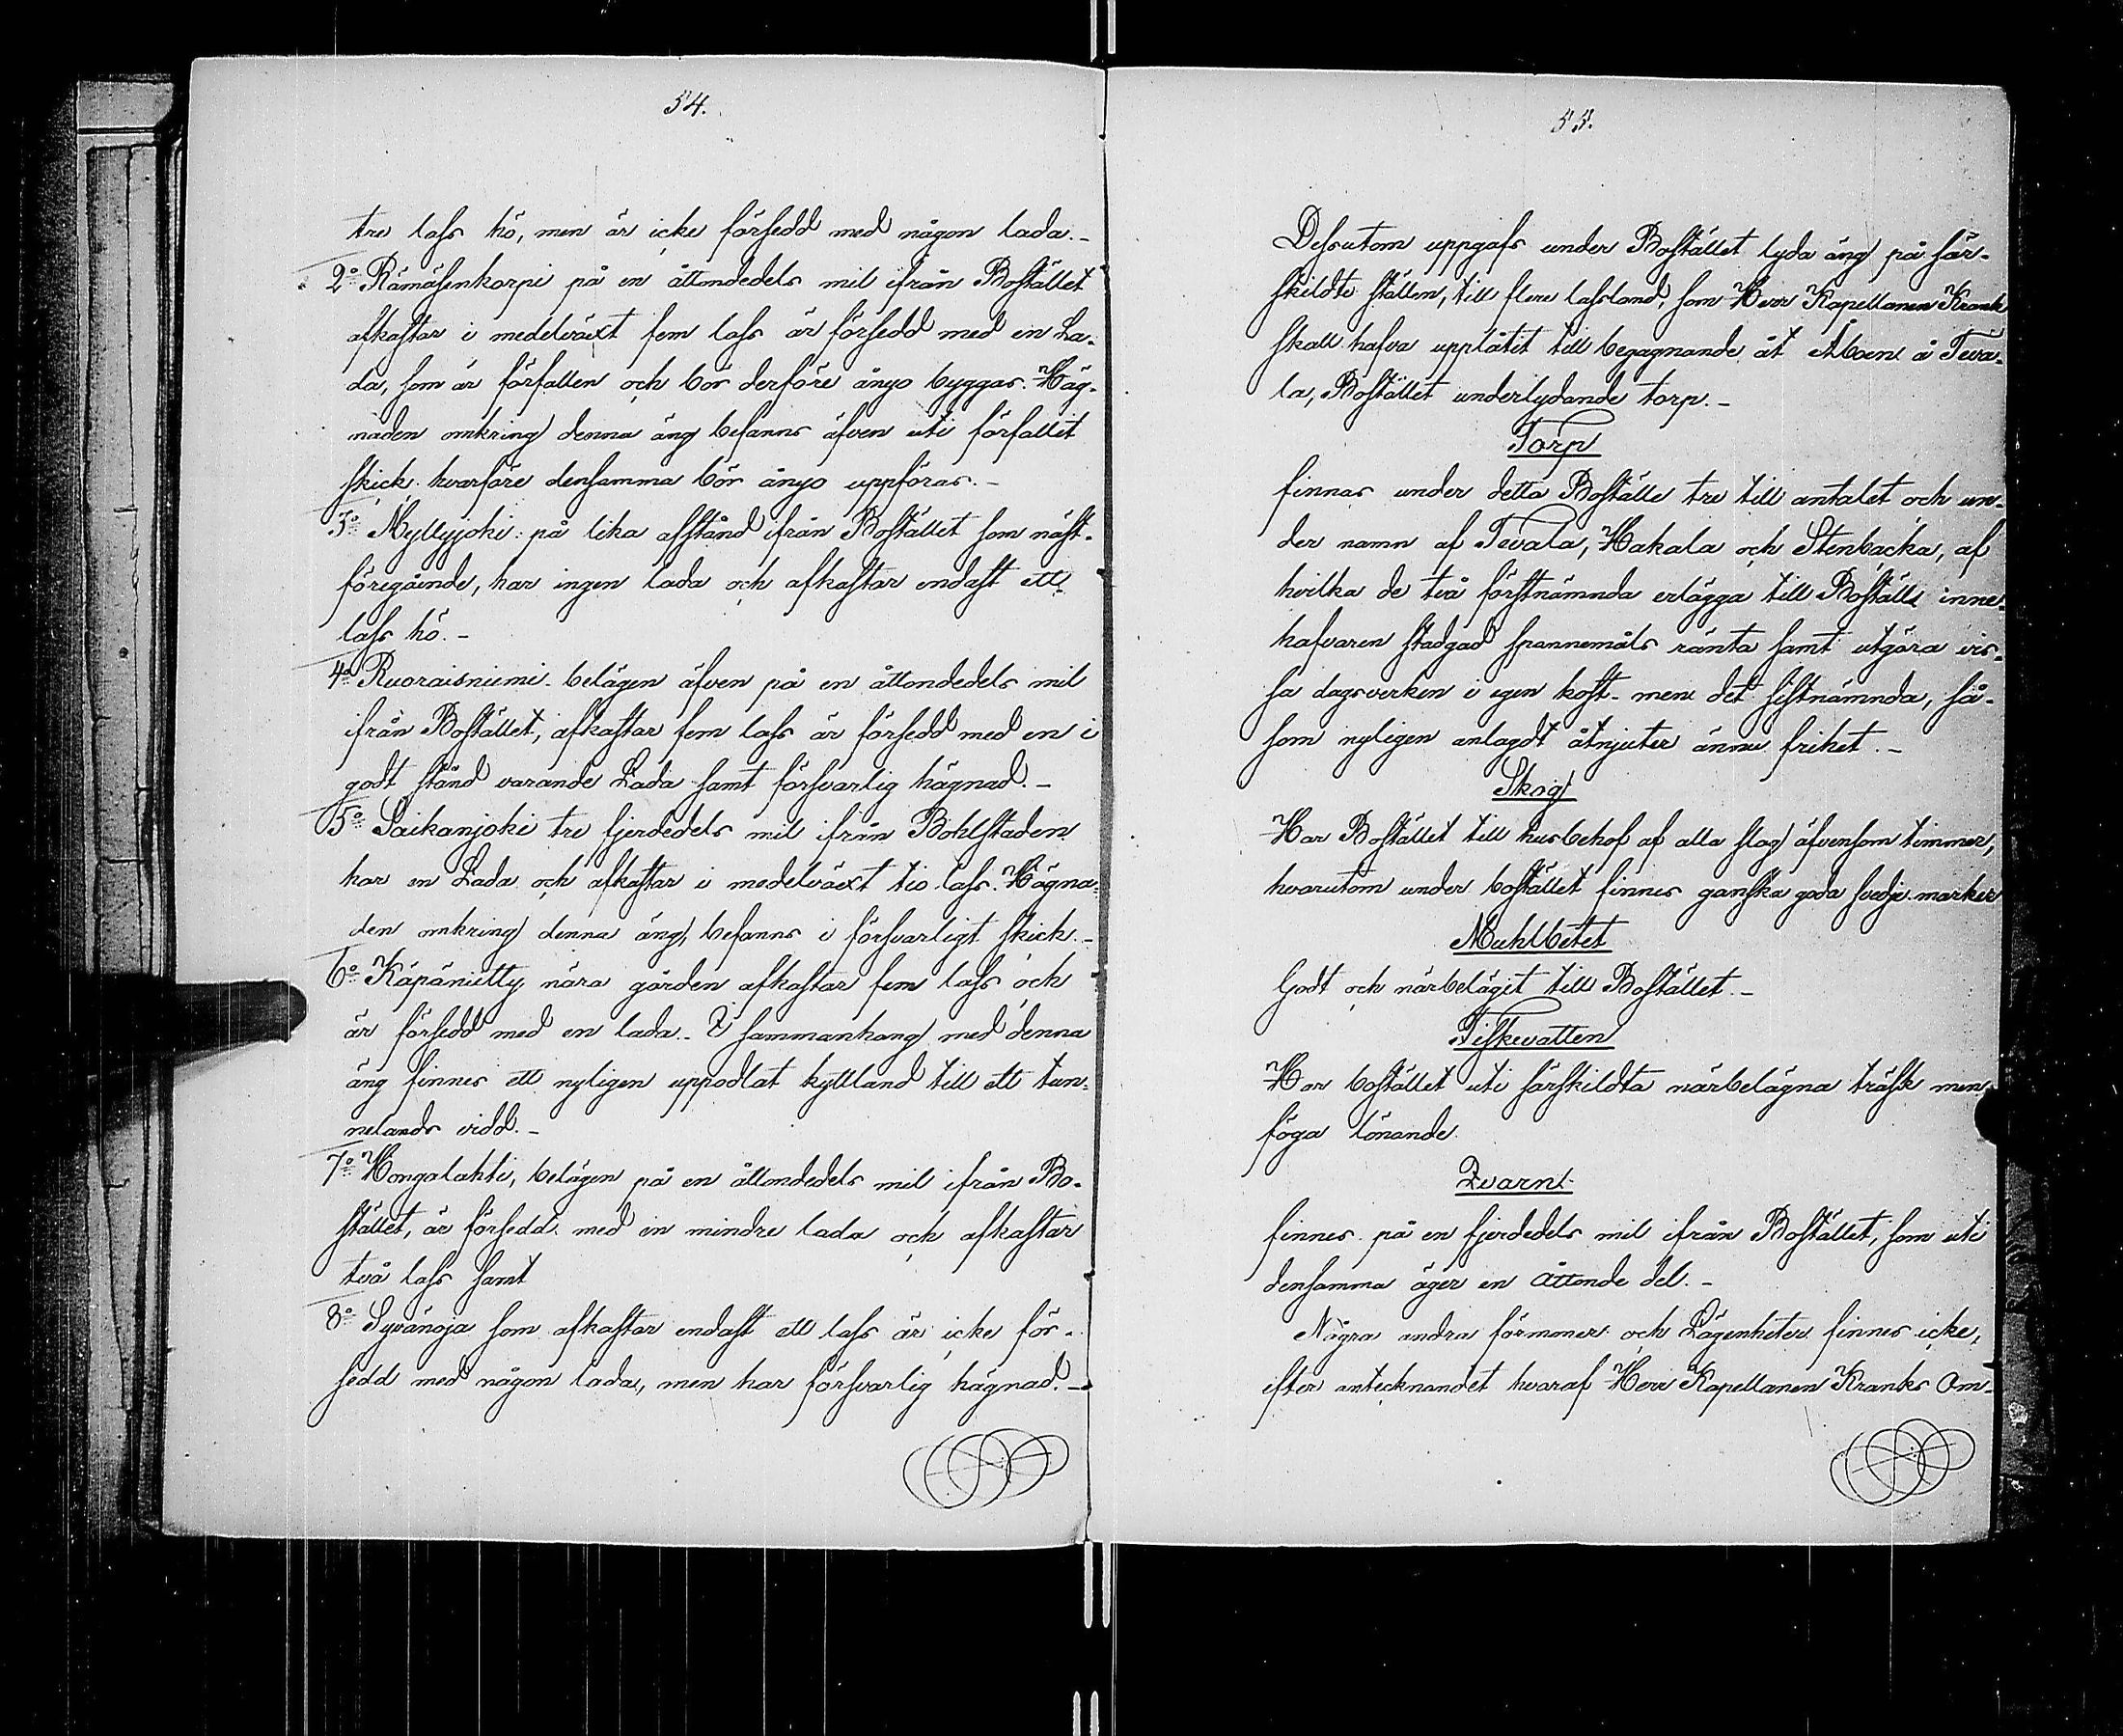 54.
tre lass hö, men är icke försedd med någon lada.-
2o Rämäsenkorpi på en åttondedels mil ifrån Bostället
afkastar i medelväxt fem lass är försedd med en La-
da, som är förfallen och bör derföre ånyo byggas. Häg-
naden omkring denna äng befanns äfven uti förfallit
skick hvarföre densamma bör ånyo uppföras.-
3o Myllyjoki på lika afstånd ifrån Bostället som näst-
föregående, har ingen lada och afkastar endast ett
lass hö.-
4o Ruoraisniemi belägen äfven på en åttondedels mil
ifrån Bostället, afkastar fem lass är försedd med en i
godt stånd varande Lada samt försvarlig hägnad.-
5o Saikanjoki tre fjerdedels mil ifrån Bohlstaden
har en Lada och afkastar i medelväxt tio lass. Hägna-
den omkring denna äng, befanns i försvarligt skick.-
6o Käpänietty nära gården afkastar fem lass och
är försedd med en lada.- I sammanhang med denna
äng finnes ett nyligen uppodlat kyttland till ett tun-
nelands vidd.-
7o Hongalahti, belägen på en åttondedels mil ifrån Bo-
stället, är försedd med en mindre lada och afkastar
två lass samt
8o Syvänoja som afkastar endast ett lass är icke för-
sedd med någon lada, men har försvarlig hägnad.-
55.
Dessutom uppgafs under Bostället lyda äng på sär-
skildte ställen, till flere lassland, som Herr Kapellanen Krank
skall hafva upplåtit till begagnande åt Åboen å Teva-
la, Bostället underlydande torp.-
Torp
finnas under detta Boställe tre till antalet och un-
der namn af Tevala, Hakala och Stenbacka, af
hvilka de två förstnämnda erlägga till Boställs inne-
hafvaren stadgad spannemåls ränta samt utgöra vis-
sa dagsverken i egen kost- men det sistnämnda, så-
som nyligen anlagdt åtnjuter ännu frihet.-
Skog
Har Bostället till husbehof af alla slag äfvensom timmer,
hvarutom under bostället finnes ganska goda svedje marker
Muhlbetet
Godt och närbeläget till Bostället.-
Fiskevatten
Har bostället uti särskildta närbelägna träsk men
föga lönande.
Qvarn
finnes på en fjerdedels mil ifrån Bostället, som uti
densamma äger en Åttonde del.-
Några andra förmoner och Lägenheter finnes icke,
efter antecknandet hvaraf Herr Kapellanen Kranks Om-